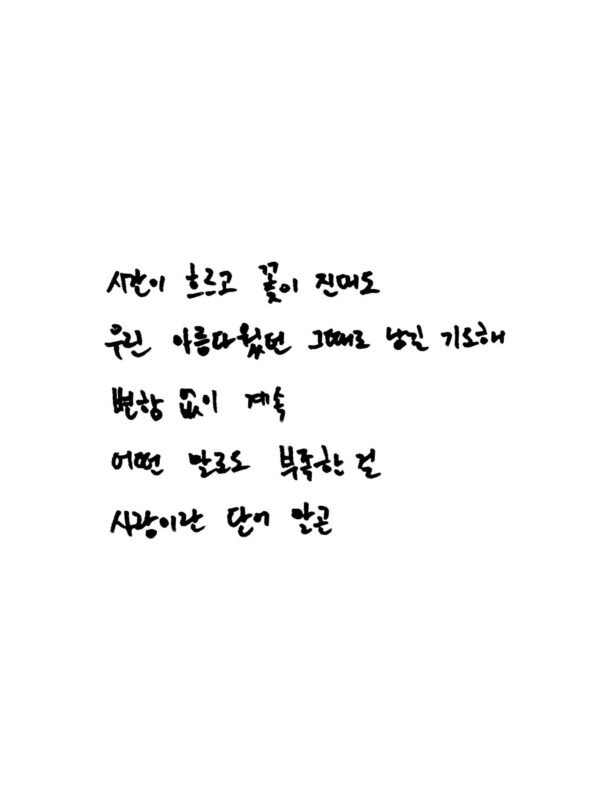 시간이 흐르고 꽃이 진대도
우린 아름다웠던 그때로 남길 기도해
변함 없이 계속
어떤 말로도 부족한 걸
사랑이란 단어 말곤